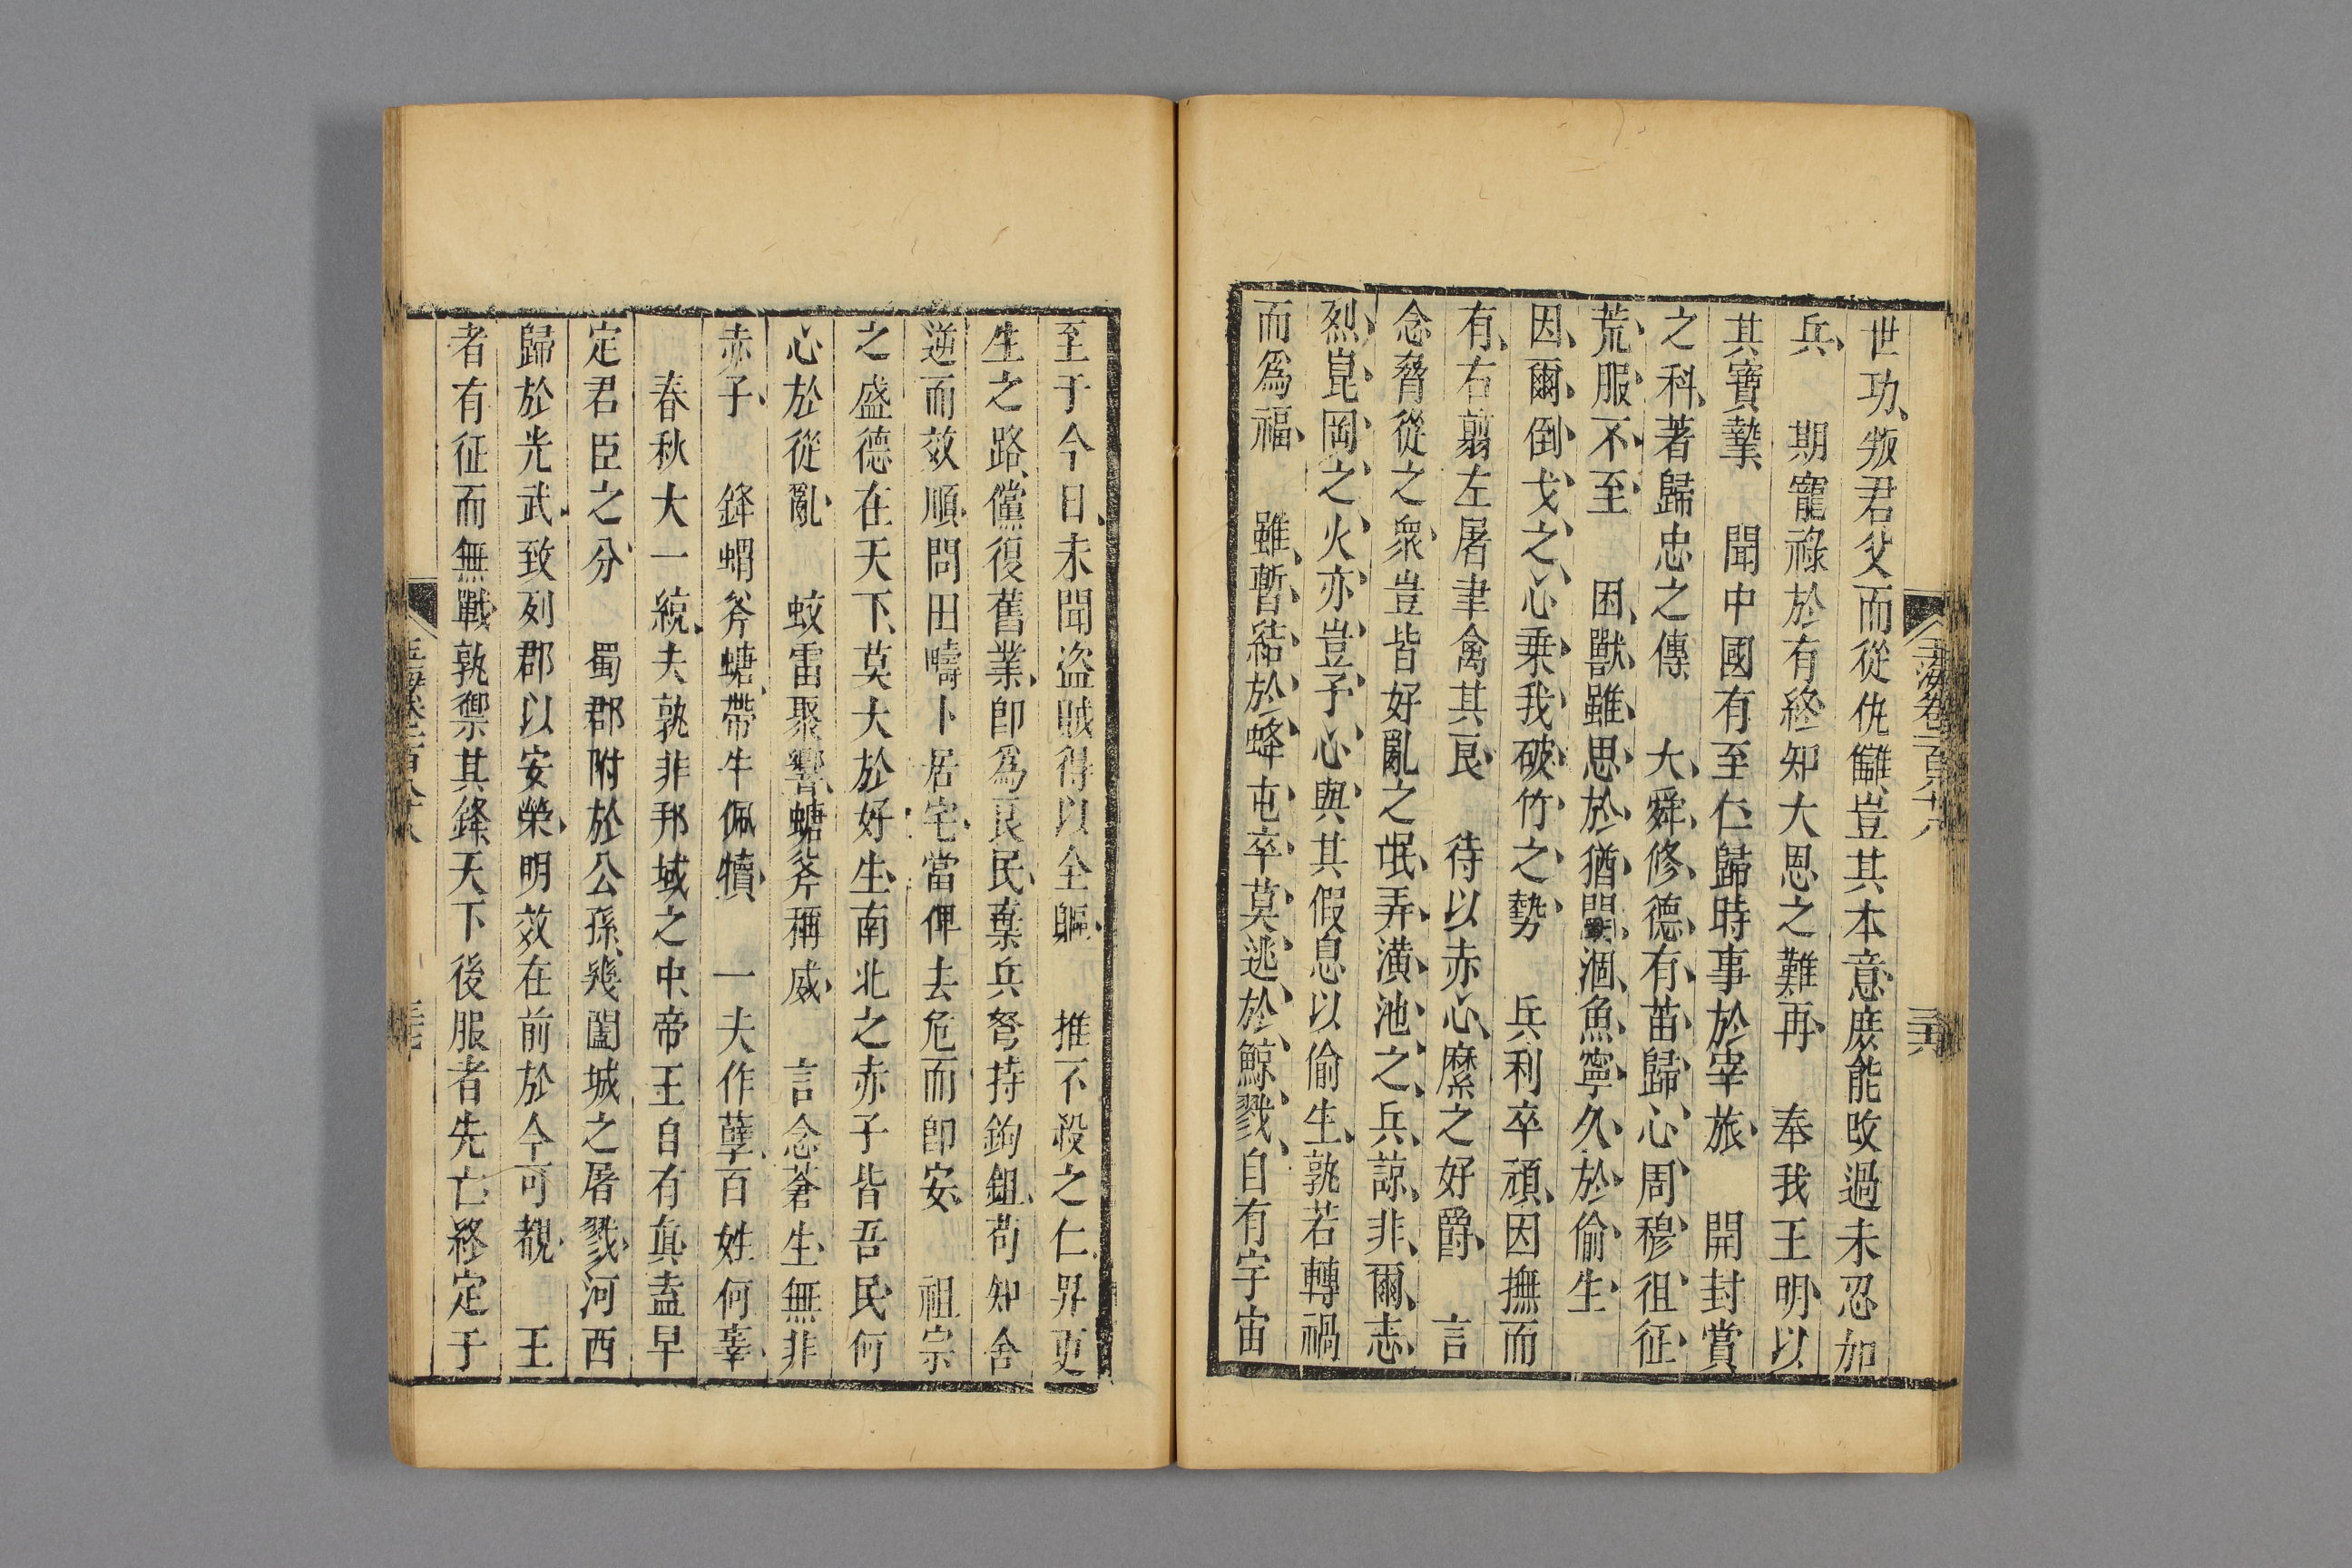 世功叛君父而從仇讎豈其本意庶能改過未忍加
兵　期寵祿於有終知大恩之難再　奉我王明以
其寶摯　聞中國有至仁歸時事於宰旅　開封賞
之科著歸忠之傳　大舜修德有苗歸心周穆徂征
荒服不至　困獸雖思於猶鬭涸魚寧久於偷生
因爾倒戈之心乘我破竹之勢　兵利卒頑因撫而
有右翦左屠聿禽其良　待以赤心縻之好爵　言
念脅從之衆豈皆好亂之氓弄潢池之兵諒非爾志
烈崑岡之火亦豈予心與其假息以偷生孰若轉禍
而爲福　雖暫結於蜂屯卒莫逃於鯨戮自有宇宙
至于今日未聞盗賊得以全軀　推不殺之仁畀更
生之路儻復舊業卽爲良民棄兵弩持鉤鉏苟知舍
逆而效順問田疇卜居宅當俾去危而卽安　祖宗
之盛德在天下莫大於好生南北之赤子皆吾民何
心於從亂　蚊雷聚響螗斧稱威　言念蒼生無非
赤子　鋒蝟斧螗帶牛佩犢　一夫作孽百姓何辜
春秋大一統夫孰非邦域之中帝王自有眞盍早
定君臣之分　蜀郡附於公孫幾闔城之屠戮河西
歸於光武致列郡以安榮明效在前於今可覩　王
者有征而無戰孰禦其鋒天下後服者先亡終定于